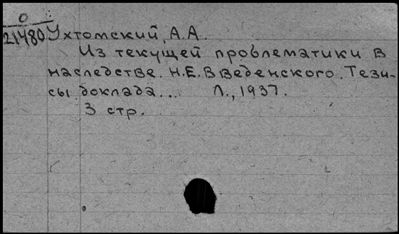 О
21480 Ухтомский, А.А.
Из текущей проблематики в
наследстве Н.Е. Введенского. Тези-
сы доклада... Л., 1937.
3 стр.